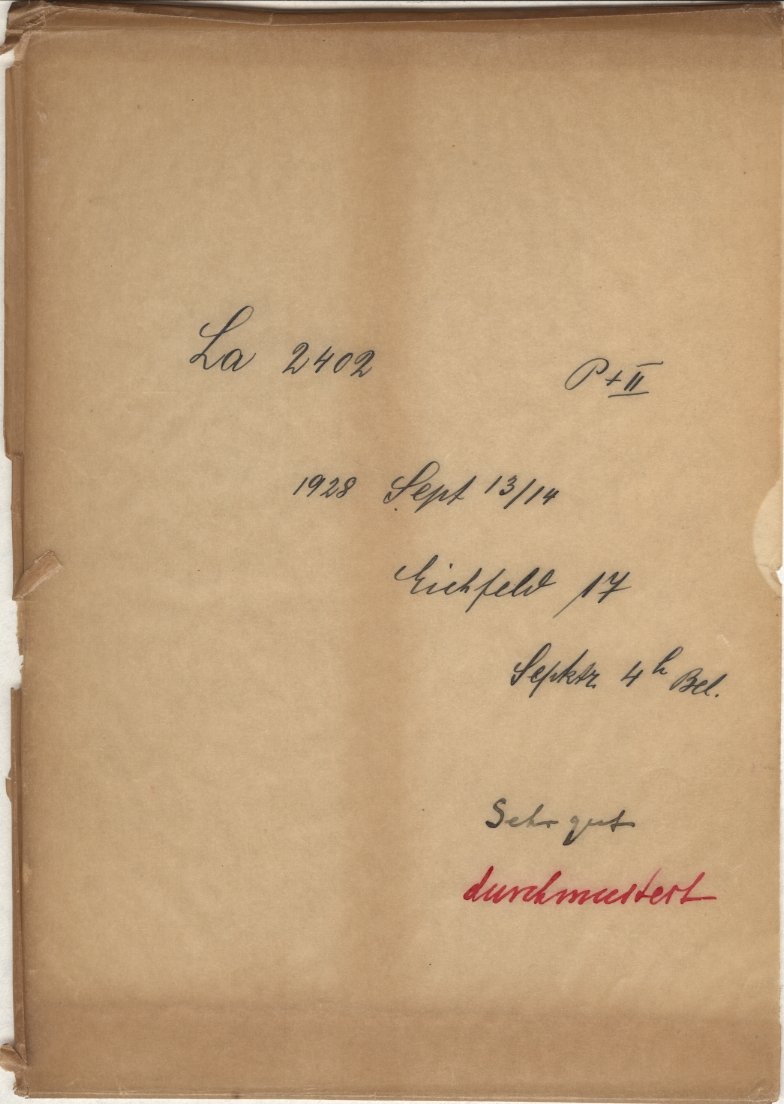 La 2402 P+II
1928 Sept 13/14
Eichfeld 17
Spktr. 4h Bel.
Sehr gut
durchmustert